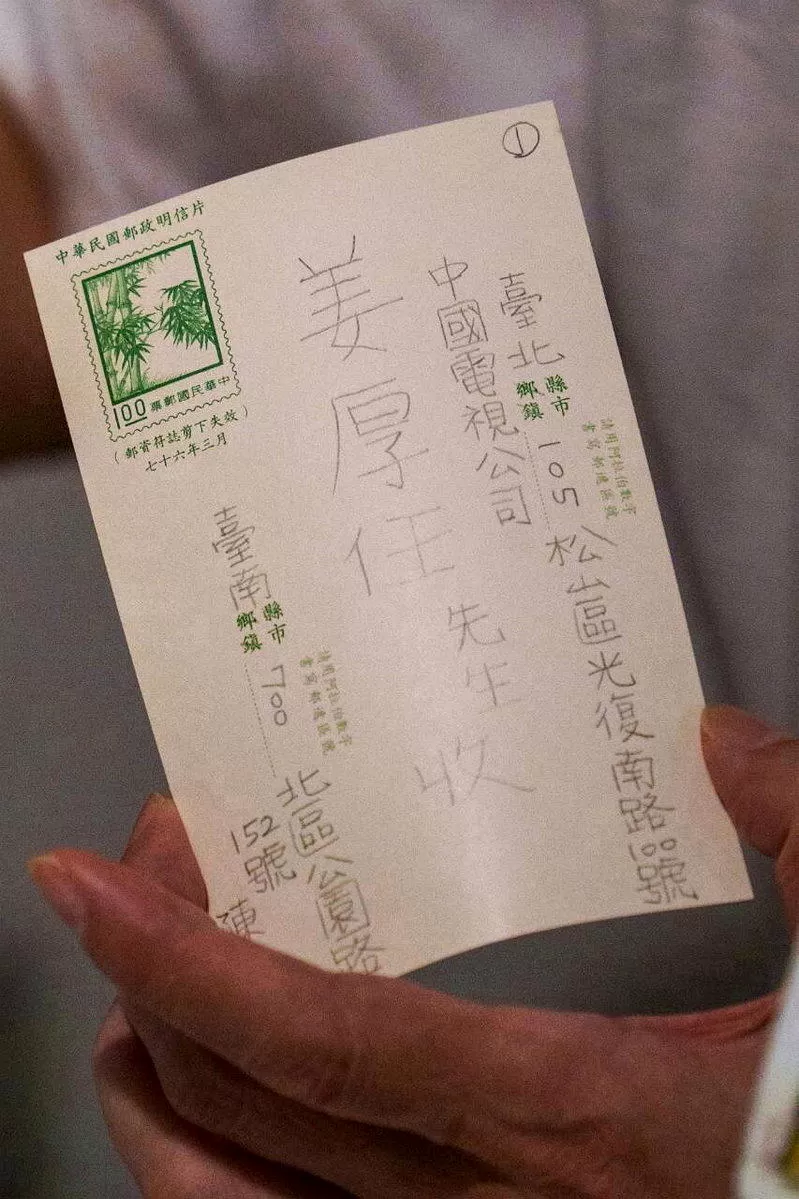 ①
中華民國郵政明信片
中華民國郵票
1.00
（郵資符誌剪下失效）
七十六年三月
臺北
縣市
鄉鎮
請用阿拉伯數字
書寫郵遞區號
105
松山區光復南路100號
中國電視公司
姜厚任
先生
收
臺南
縣市
鄉鎮
請用阿拉伯數字
書寫郵遞區號
700
北區公園路
152號
陳